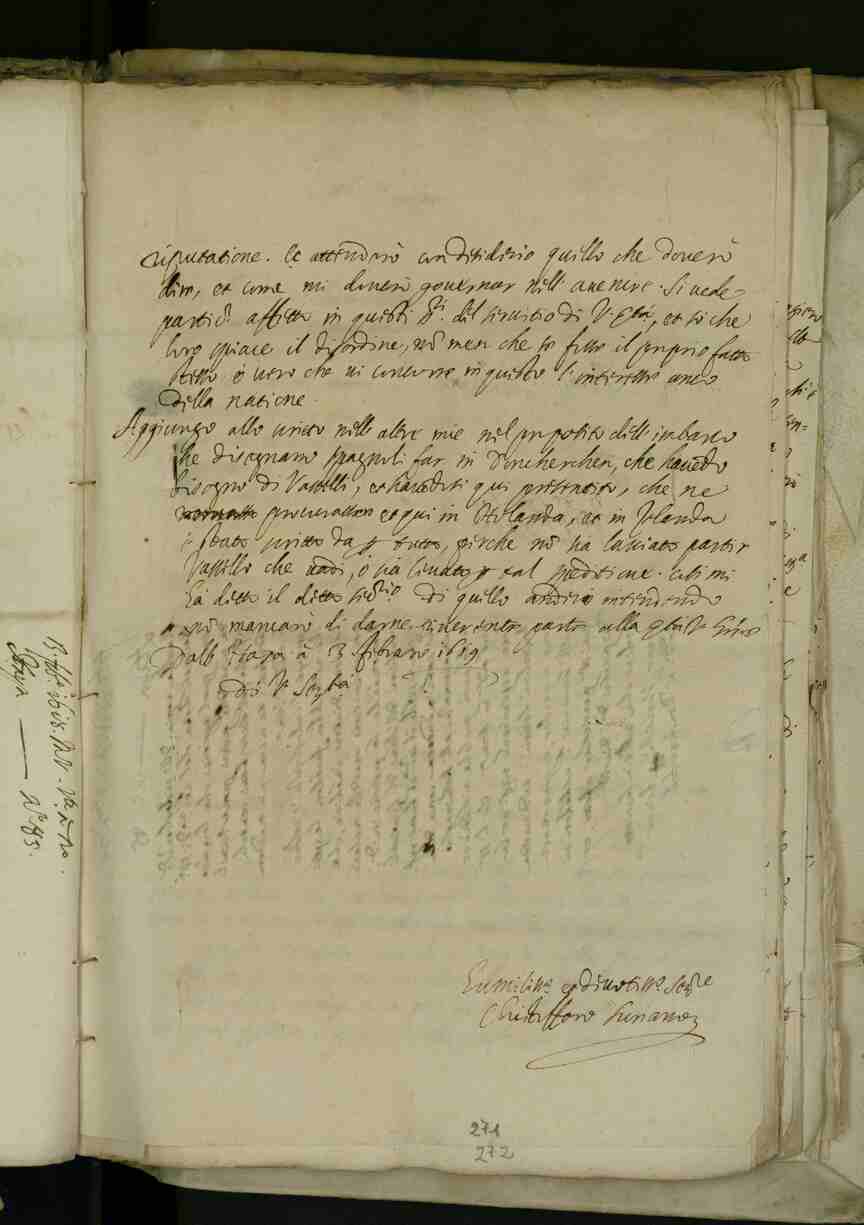 riputatione. et attenderò con desiderio quello che doverò
dire, et come mi doverò governar nell' avenire. Si vede
partic.r affetto in questi SS.ri del servitio di V. Ser.tà, et so che
loro spiace il disordine, nò men che se fusse il proprio fatto
stesso, è vero che vi concorre in questo l'interesse anco
della natione.
Aggiungo allo scritto nelle altre mie nel proposito dell'imbarco
che disegnano spagnoli far in Doncherchen, che havedo
bisogno di Vasselli, et havedosi qui presentito, che ne
procuravano et qui in Holanda, et in Zelanda
è stato scritto da p tutto, perche nò sia lasciato partir
Vassello che vadi, ò sia levato p tal speditione. Così mi
hà detto il detto
di quello anderò intendendo
nò mancarò di darne riverente parte alla
Dall' Haya à 3 Febraro 1619
Di V. Ser.tà
Humiliss.o et devotiss.o Ser.re
Christofforo Suriano
271
272
Haya
N.o 83.